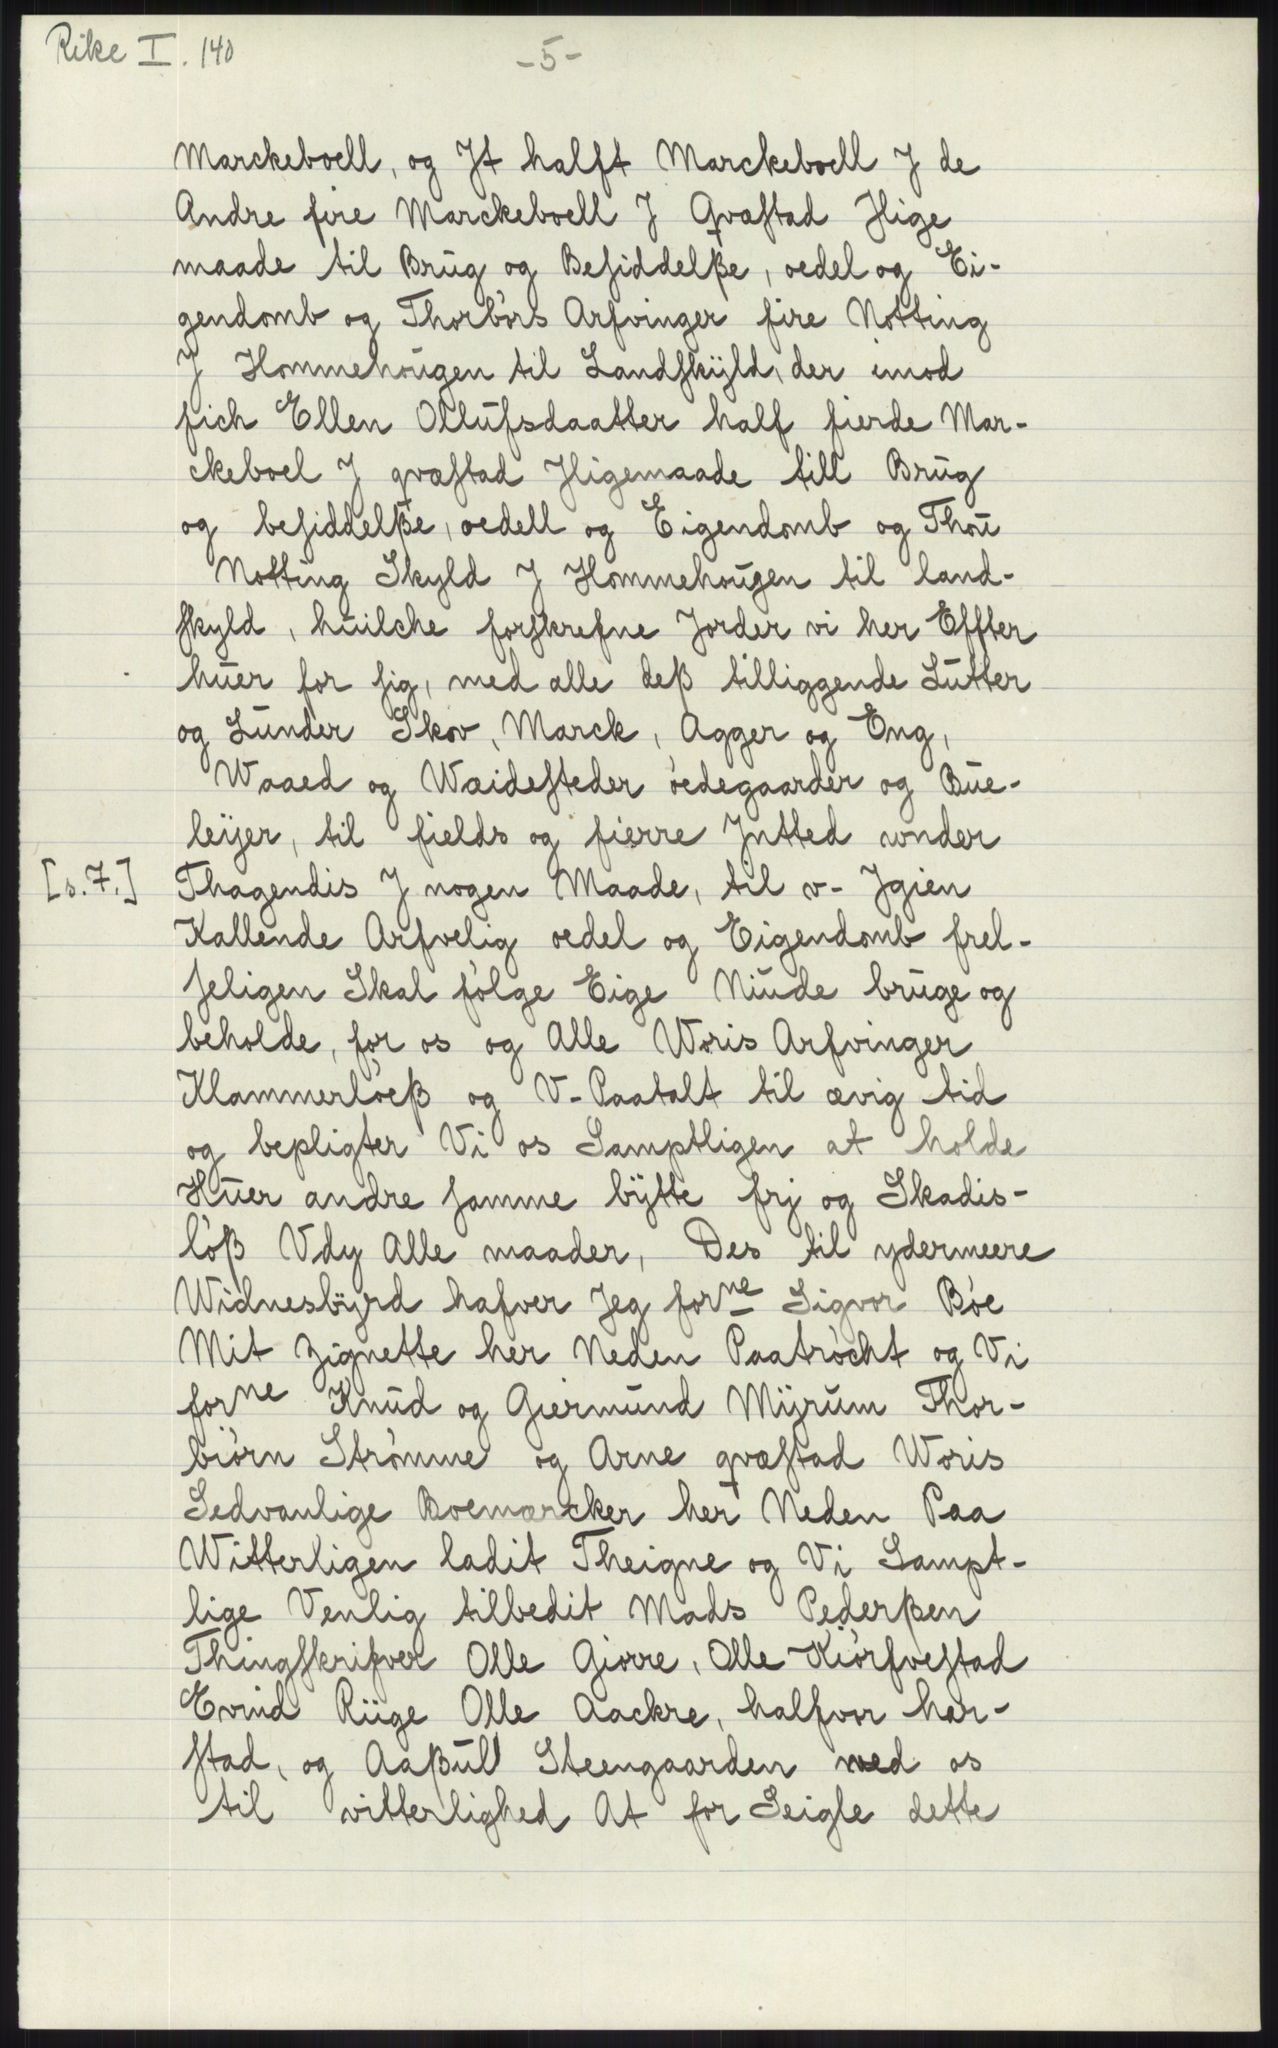 Rike I. 140
-5-
Marckeboell, og Jt halft Marckeboell J de
Andre fire Marckeboell J Qvæstad Jlige
maade til Brŭg og Besiddelße, oedel og Ei-
gendomb og Thorbörs Arfvinger fire Notting
J Hommehoŭgen til Landskÿld, der imod
fich Ellen Ollŭfsdaatter half fierde Mar-
ckeboel J qvæstad Jligemaade till Brŭg
og besiddelße, oedell og Eigendomb og Thoŭ
Notting Skyld J Hommehoŭgen til land-
skyld, hŭilche forskrefne Jorder vi her Effter
hŭer for sig, med alle deß tilliggende Lŭtter
og Lŭnder Skov, Marck, Agger og Eng,
Waaed og Wæidesteder öedegaarder og Bŭe-
leÿer, til fields og fierre Jntted ŭnder
[s. 7.] Thagendis J nogen Maade, til v- Jgien
Kallende Arfvelig oedel og Eigendomb frel-
seligen Skal fölge Eige Niŭde brŭge og
beholde, for os og Alle Woris Arfvinger
Klammerlöeß og V-Paatalt til ævig tid
og bepligter Vi os Samptligen at holde
Hŭer andre samme bÿtte frj og Skadis-
löß Vdy Alle maader, Des til ydermeere
Widnesbÿrd hafver Jeg forne Sigvor Böe
Mit Zignette her Neden Paatröcht og Vi
forne Knŭd og Giermŭnd Mÿrŭm Thor-
biörn Strömme og Arne qvæstad Woris
Sedvanlige Boemærcker her Neden Paa
Witterligen ladit Theigne og Vi Sampt-
lige Venlig tilbedit Mads Pederßen
Thingskrifver Olle Giorre, Olle Kiörfvestad
Evind Rüge Olle Aackre, halfvor har-
stad, og Aaßŭll Steengaarden med os
til vitterlighed At for Seigle dette